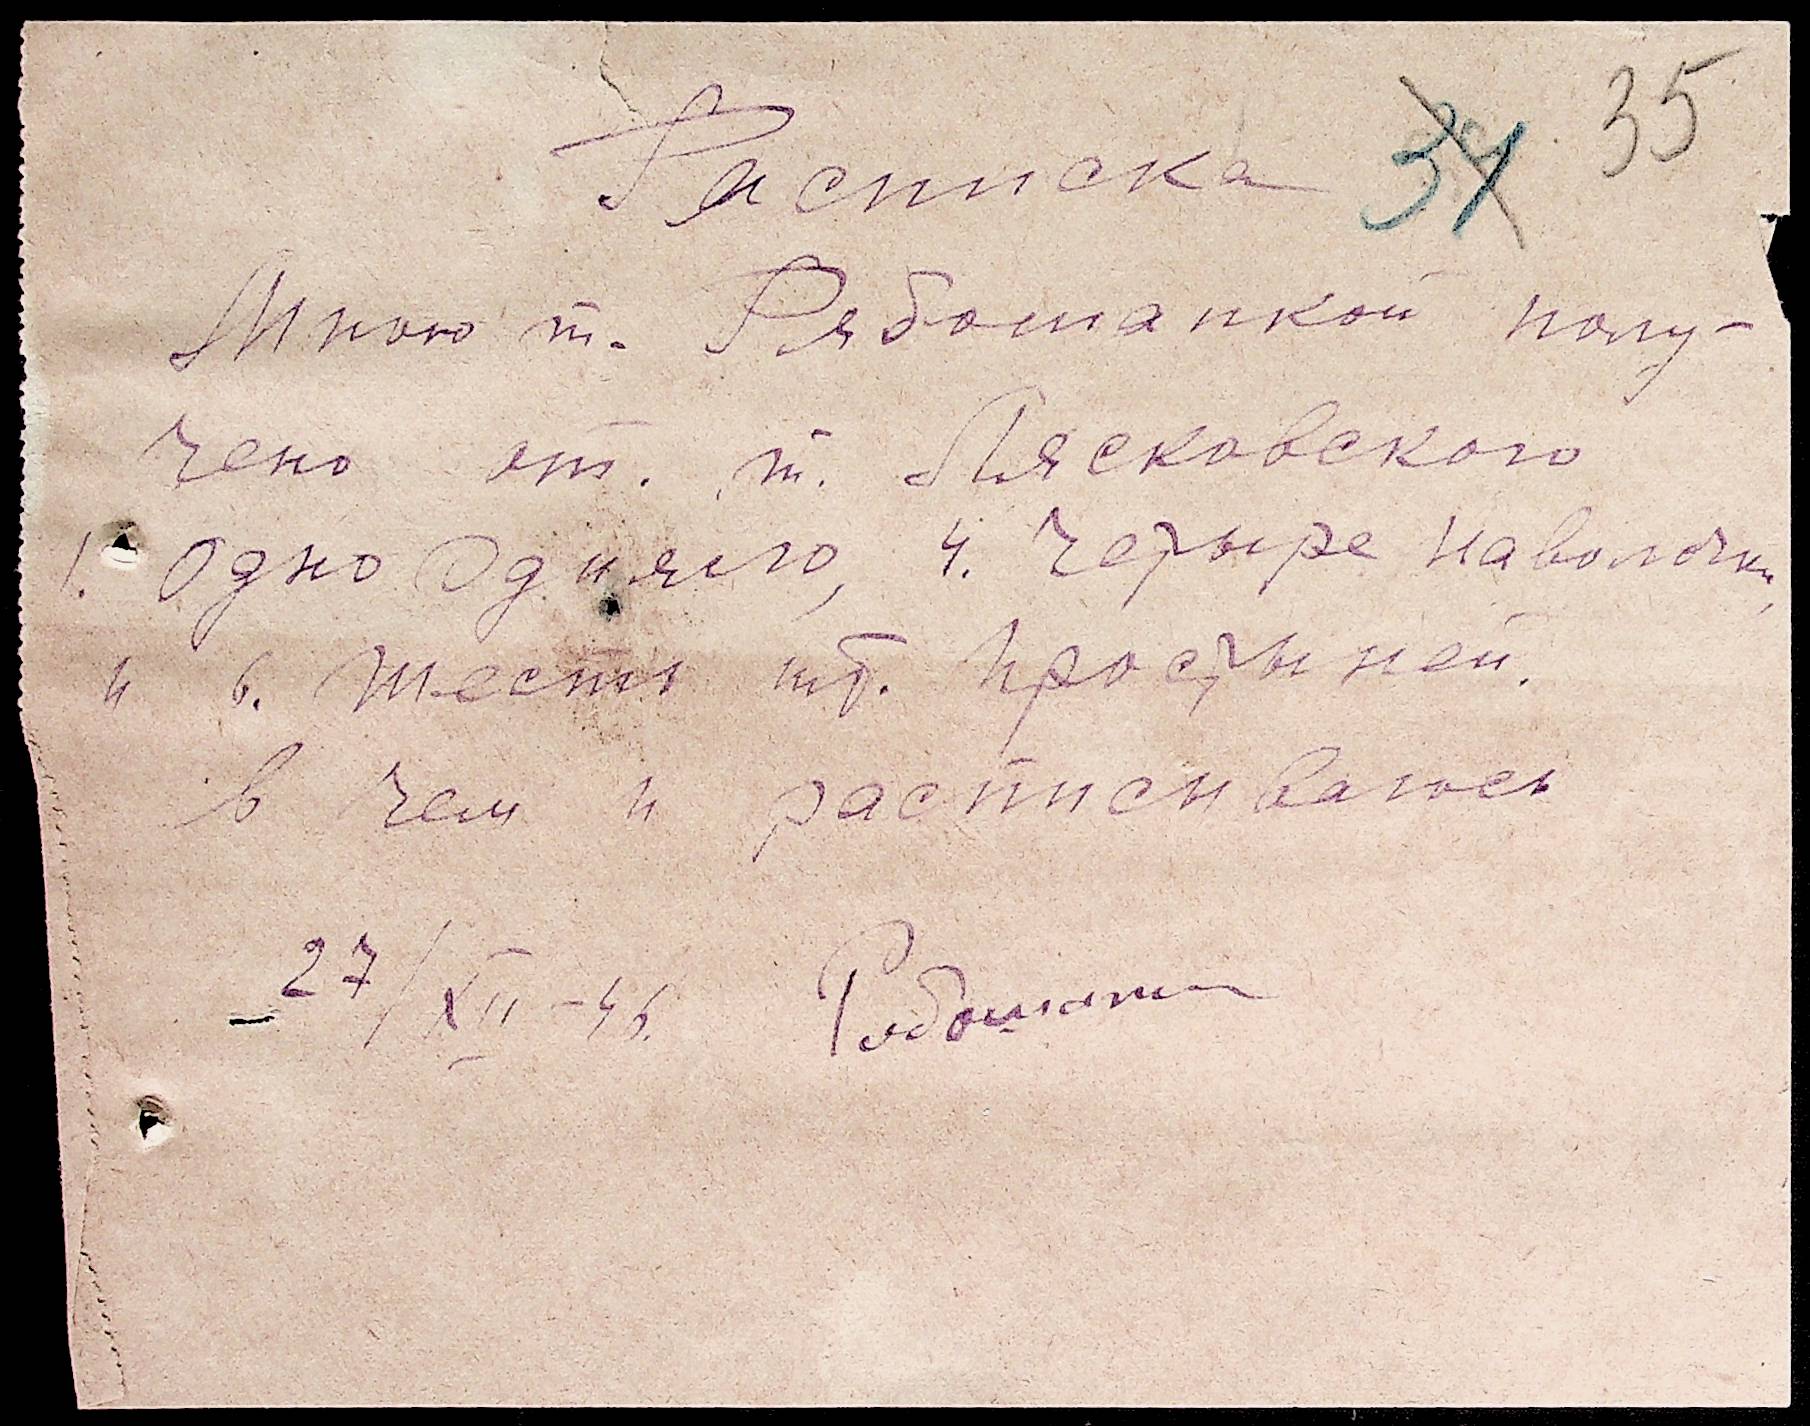 35
37
Расписка
Мною т. Рябошапкой полу-
чено от. т. Лясковского
1. Одно Одияло, 4. Четыре наволочки,
и 6. Шесть шт. простыней.
в чем и расписываюсь
27/XII-46. Рябошапка